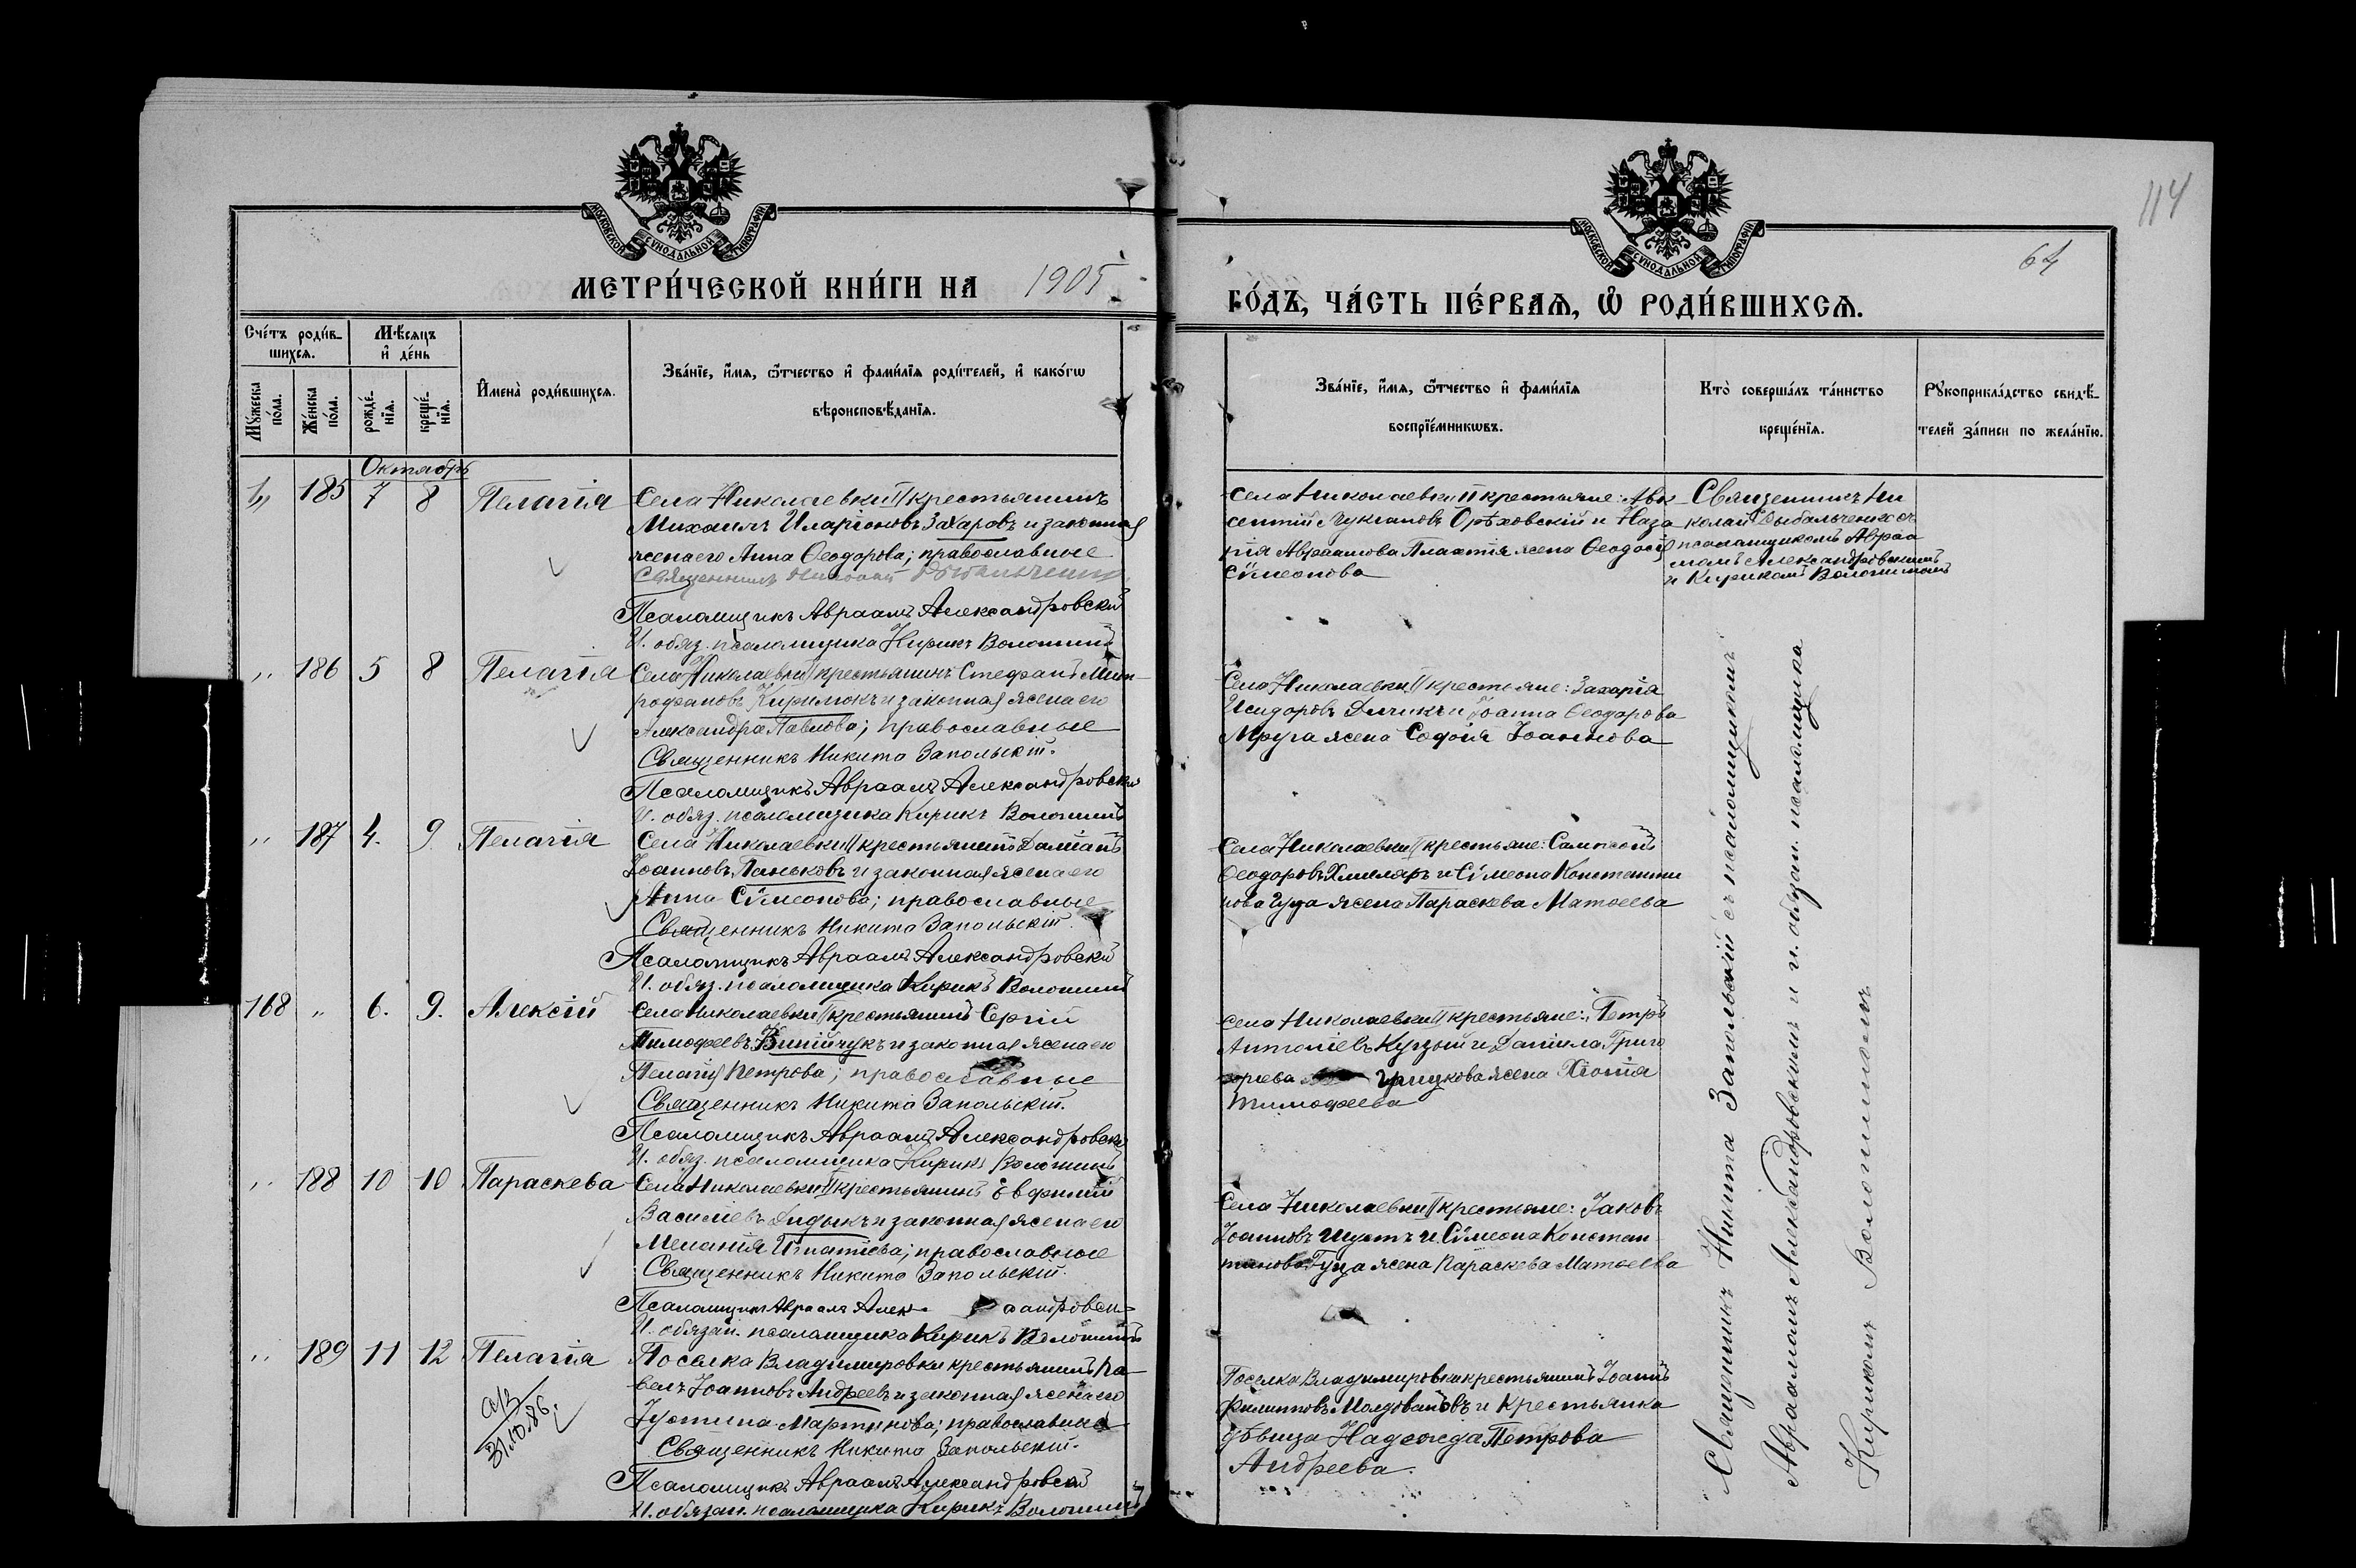 114
64
МОСКОВСКОЙ СѴНОДАЛЬНОЙ ТИПОГРАФІИ
МОСКОВСКОЙ СѴНОДАЛЬНОЙ ТИПОГРАФІИ
МЕТРИ́ЧЕСКОЙ КНИ́ГИ НА 1905
ГО́ДЪ, ЧА́СТЬ ПЕ́РВАѦ, Ѿ РОДИ́ВШИХСѦ.
Сче́тъ роди́в-
шихсѧ.
Мѣ́сѧцъ
и҆ де́нь
Мꙋ́жеска
по́ла.
Же́нска
по́ла.
рожде́-
нїѧ.
креще́-
нїѧ.
И҆мена̀ роди́вшихсѧ.
Зва́нїе, и҆́мѧ, ѻ҆́тчество и҆ фами́лїѧ роди́телей, и҆ како́гѡ
вѣроисповѣ́данїѧ.
Зва́нїе, и҆́мѧ, ѻ҆́тчество и҆ фами́лїѧ
воспрїе́мникѡвъ.
Кто̀ соверша́лъ та́инство
креще́нїѧ.
Рꙋкоприкла́дство свидѣ́-
телей за́писи по жела́нїю.
Октябрь
" 185 7 8 Пелагія
Села Николаевки II крестьянинъ
Михаилъ Иларіоновъ Захаровъ и законная
жена его Анна Ѳеодорова; православные
Священникъ Николай
Псаломщикъ Авраамъ Александровскій
И. обяз. псаломщика Кирикъ Волошинъ
Села Николаевки II крестьяне: Авк
сентій Лукіановъ Орѣховскій и Наза
рія Авраамова Платтія жена Ѳеодосія
Сѵмеонова
Священникъ Ни
колай Рыбальченко съ
псаломщикомъ Авраа
момъ Александровскимъ
и Кирикомъ Волошиномъ
" 186 5 8 Пелагія
Села Николаевки II крестьянинъ Стефанъ Мит-
рофановъ Кирилюкъ и законная жена его
Александра Павлова; православные
Священникъ Никита Запольскій.
Псаломщикъ Авраамъ Александровскій
И. обяз. псаломщика Кирикъ Волошинъ
Села Николаевки II крестьяне: Захарія
Исидоровъ и Іоанна Ѳеодорова
Мруга жена Софія Іоаннова
" 187 4. 9 Пелагія
Села Николаевки II крестьянинъ Даміанъ
Іоанновъ Паньковъ и законная жена его
Анна Сѵмеонова; православные
Священникъ Никита Запольскій.
Псаломщикъ Авраамъ Александровскій
И. обяз. псаломщика Кирикъ Волошинъ
Села Николаевки II крестьяне: Сампсонъ
Ѳеодоровъ Хмиляръ и Сѵмеона Константи
нова Гуца жена Параскева Матѳеева
168 " 6. 9. Алексій
Села Николаевки II крестьянинъ Сергій
Тимофеевъ Витійчукъ и законная жена его
Пелагія Петрова; православные
Священникъ Никита Запольскій.
Псаломщикъ Авраамъ Александровскій
И. обяз. псаломщика Кирикъ Волошинъ
Села Николаевки II крестьяне: Петръ
Антоніевъ Куцый и Даніила Григо
орьева Грицкова жена Хіонія
Тимофеева
" 188 10 10 Параскева
Села Николаевки II крестьянинъ Евфимій
Василіевъ Дидыкъ и законная жена его
Меланія Игнатіева; православные
Священникъ Никита Запольскій.
Псаломщикъ Авраамъ Алек сандровск-
И. обязан. псаломщика Кирикъ Волошинъ
Села Николаевки II крестьяне: Іаковъ
Іоанновъ Шутъ и Сѵмеона Констан
тинова Гуца жена Параскева Матѳеева
" 189 11 12 Пелагія
Поселка Владимировки крестьянинъ Па-
велъ Іоанновъ Андреевъ и законная жена его
Іустина Мартинова; православные
Священникъ Никита Запольскій.
Псаломщикъ Авраамъ Александровскій
И. обязан. псаломщика Кирикъ Волошинъ
Поселка Владимировки крестьянинъ Іоаннъ
Филипповъ Молдовановъ и крестьянка
дѣвица Надежда Петрова
Андреева.
а/з
31.10.86.
Священникъ Никита Запольскій съ псаломщикомъ
Авраамомъ Александровскимъ и и. обязан. псаломщика
Кирикомъ Волошиномъ